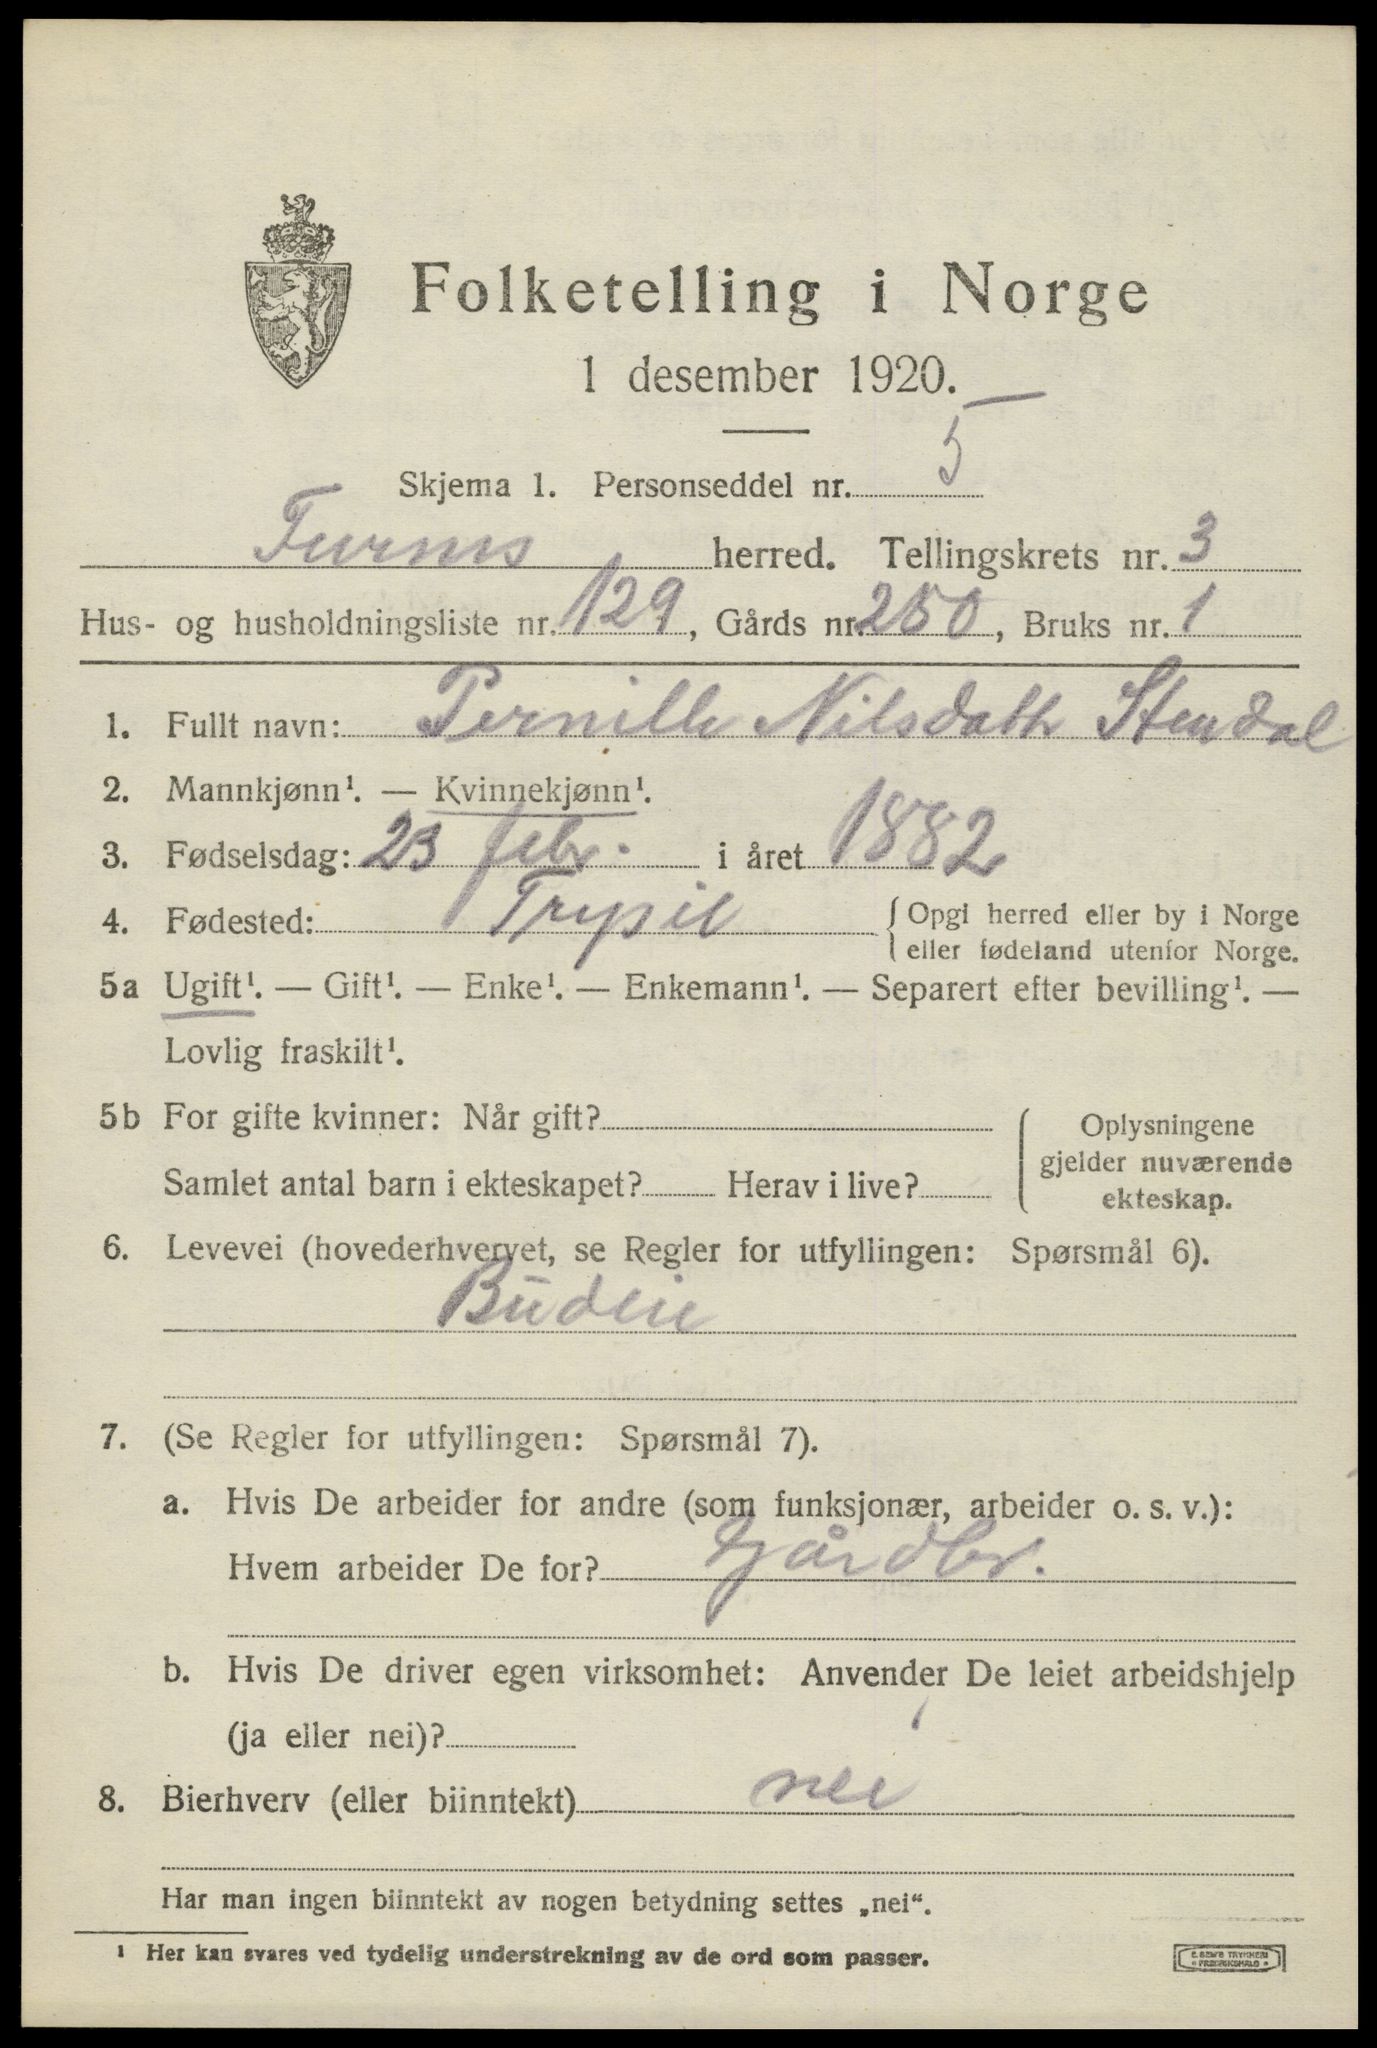 Folketelling i Norge
1 desember 1920.
Skjema 1. Personseddel nr. 5
Furnes herred. Tellingskrets nr. 3
Hus- og husholdningsliste nr. 129, Gårds nr. 250, Bruks nr. 1
1. Fullt navn: Pernille Nilsdatter Stendal
2. Mannkjønn¹. — Kvinnekjønn¹.
3. Fødselsdag: 23 febr. i året 1882
4. Fødested: Trysil {Opgi herred eller by i Norge
eller fødeland utenfor Norge.
5a Ugift¹. — Gift¹. — Enke¹. — Enkemann¹. — Separert efter bevilling¹. —
Lovlig fraskilt¹.
5b For gifte kvinner: Når gift?
Samlet antal barn i ekteskapet? Herav i live?
Oplysningene
gjelder nuværende
ekteskap.
6. Levevei (hovederhvervet, se Regler for utfyllingen: Spørsmål 6).
Budeie
7. (Se Regler for utfyllingen: Spørsmål 7).
a. Hvis De arbeider for andre (som funksjonær, arbeider o. s. v.):
Hvem arbeider De for? Gårdbr.
b. Hvis De driver egen virksomhet: Anvender De leiet arbeidshjelp
(ja eller nei)?
8. Bierhverv (eller biinntekt) nei
Har man ingen biinntekt av nogen betydning settes „nei“.
¹ Her kan svares ved tydelig understrekning av de ord som passer.
E. SEM'S TRYKKERI
FREDRIKSHALD